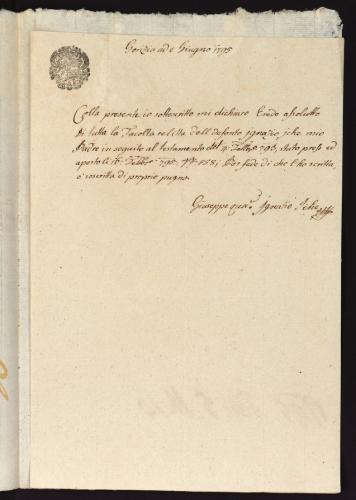 Gorizia ad 6 Giugno 1795
Colla presente io sottoscritto mi dichiaro Erede assoluto
di tutta la Facoltà relitta dell defonto Ignazio mio
Padre in seguito al testamento del 2 Febbr 795, stato preso ed
aperto li Febbr 795 N 558; Per fede di che l'ho scritta,
e soscritta di proprio pugno.
Giuseppe Ignazio